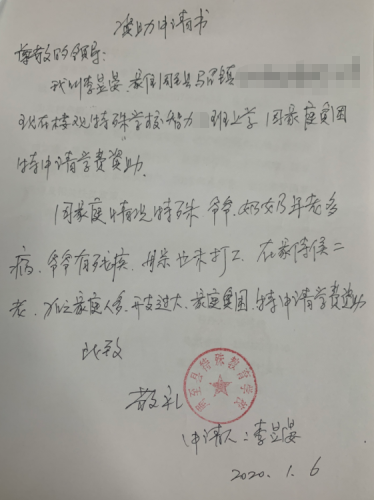 资助申请书
尊敬的领导:
我叫李昱晏,家住周至县马召镇
现在楼观特殊学校智力 班上学,因家庭贫困
特申请学费资助。
因家庭情况特殊,爷爷、奶奶年老多
病,爷爷有残疾,母亲也未打工,在家侍候二
老,加之家庭人多,开支过大,家庭贫困,特申请学费资助
此致
敬礼
周至县特殊教育学校
申请人:李昱晏
2020.1.6